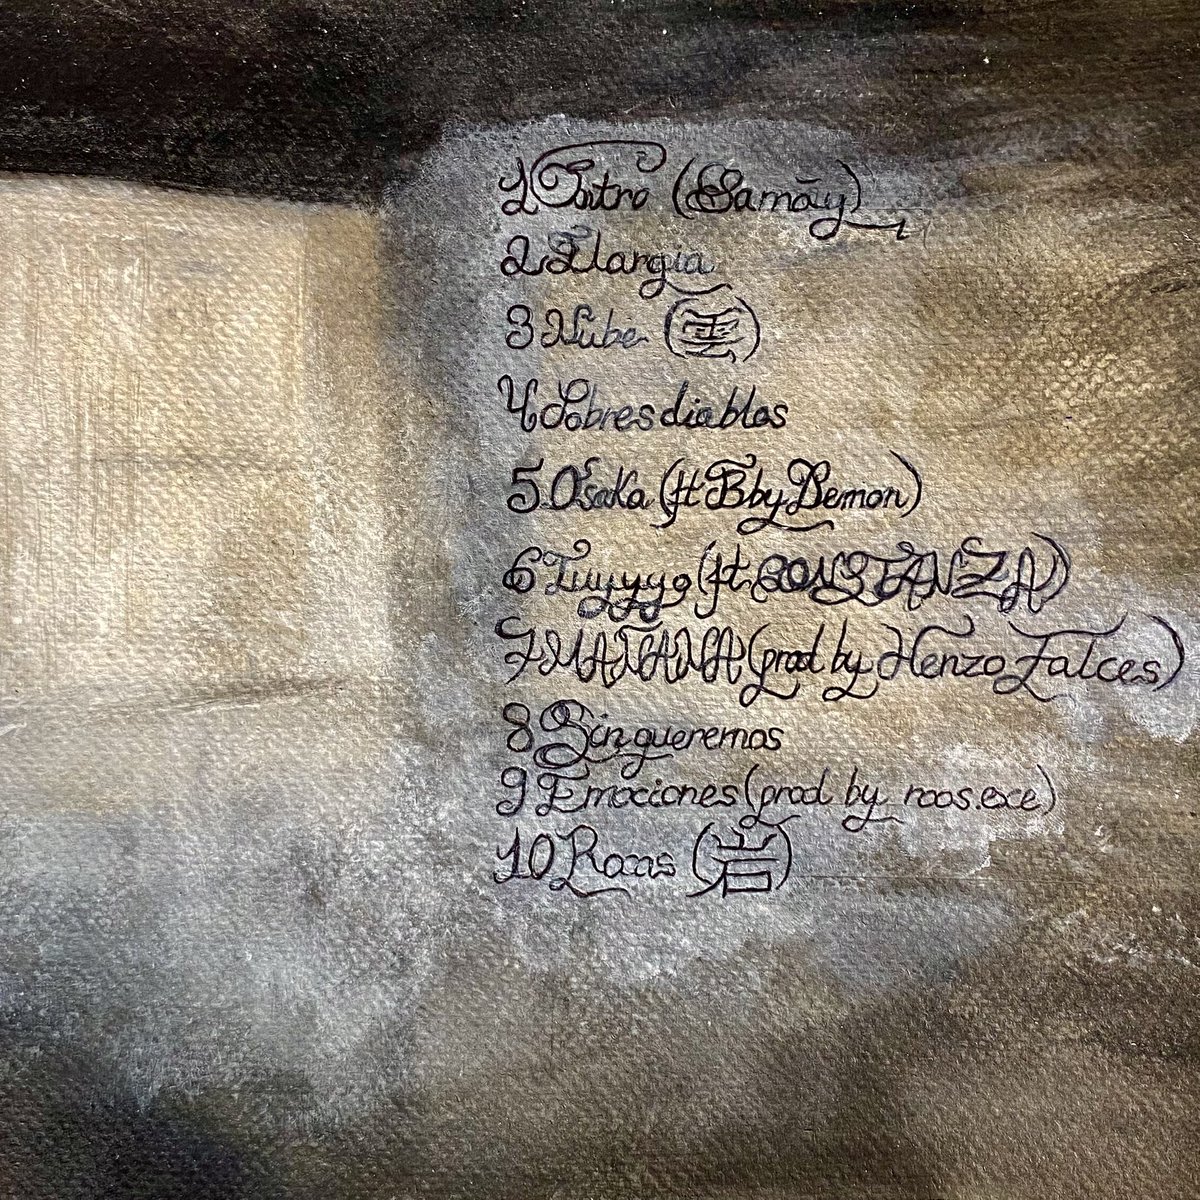 1 Intro (Samāy)
2 Ilargia
3 Nube (雲)
4 Pobres diablos
5 Osaka (ft Bby Demon)
6 Tuyyyo (ft. CONSTANZA)
7 MAÑANA (prod by Henzo Falces)
8 Sin queremos
9 Emociones (prod by roos.exe)
10 Rocas (岩)